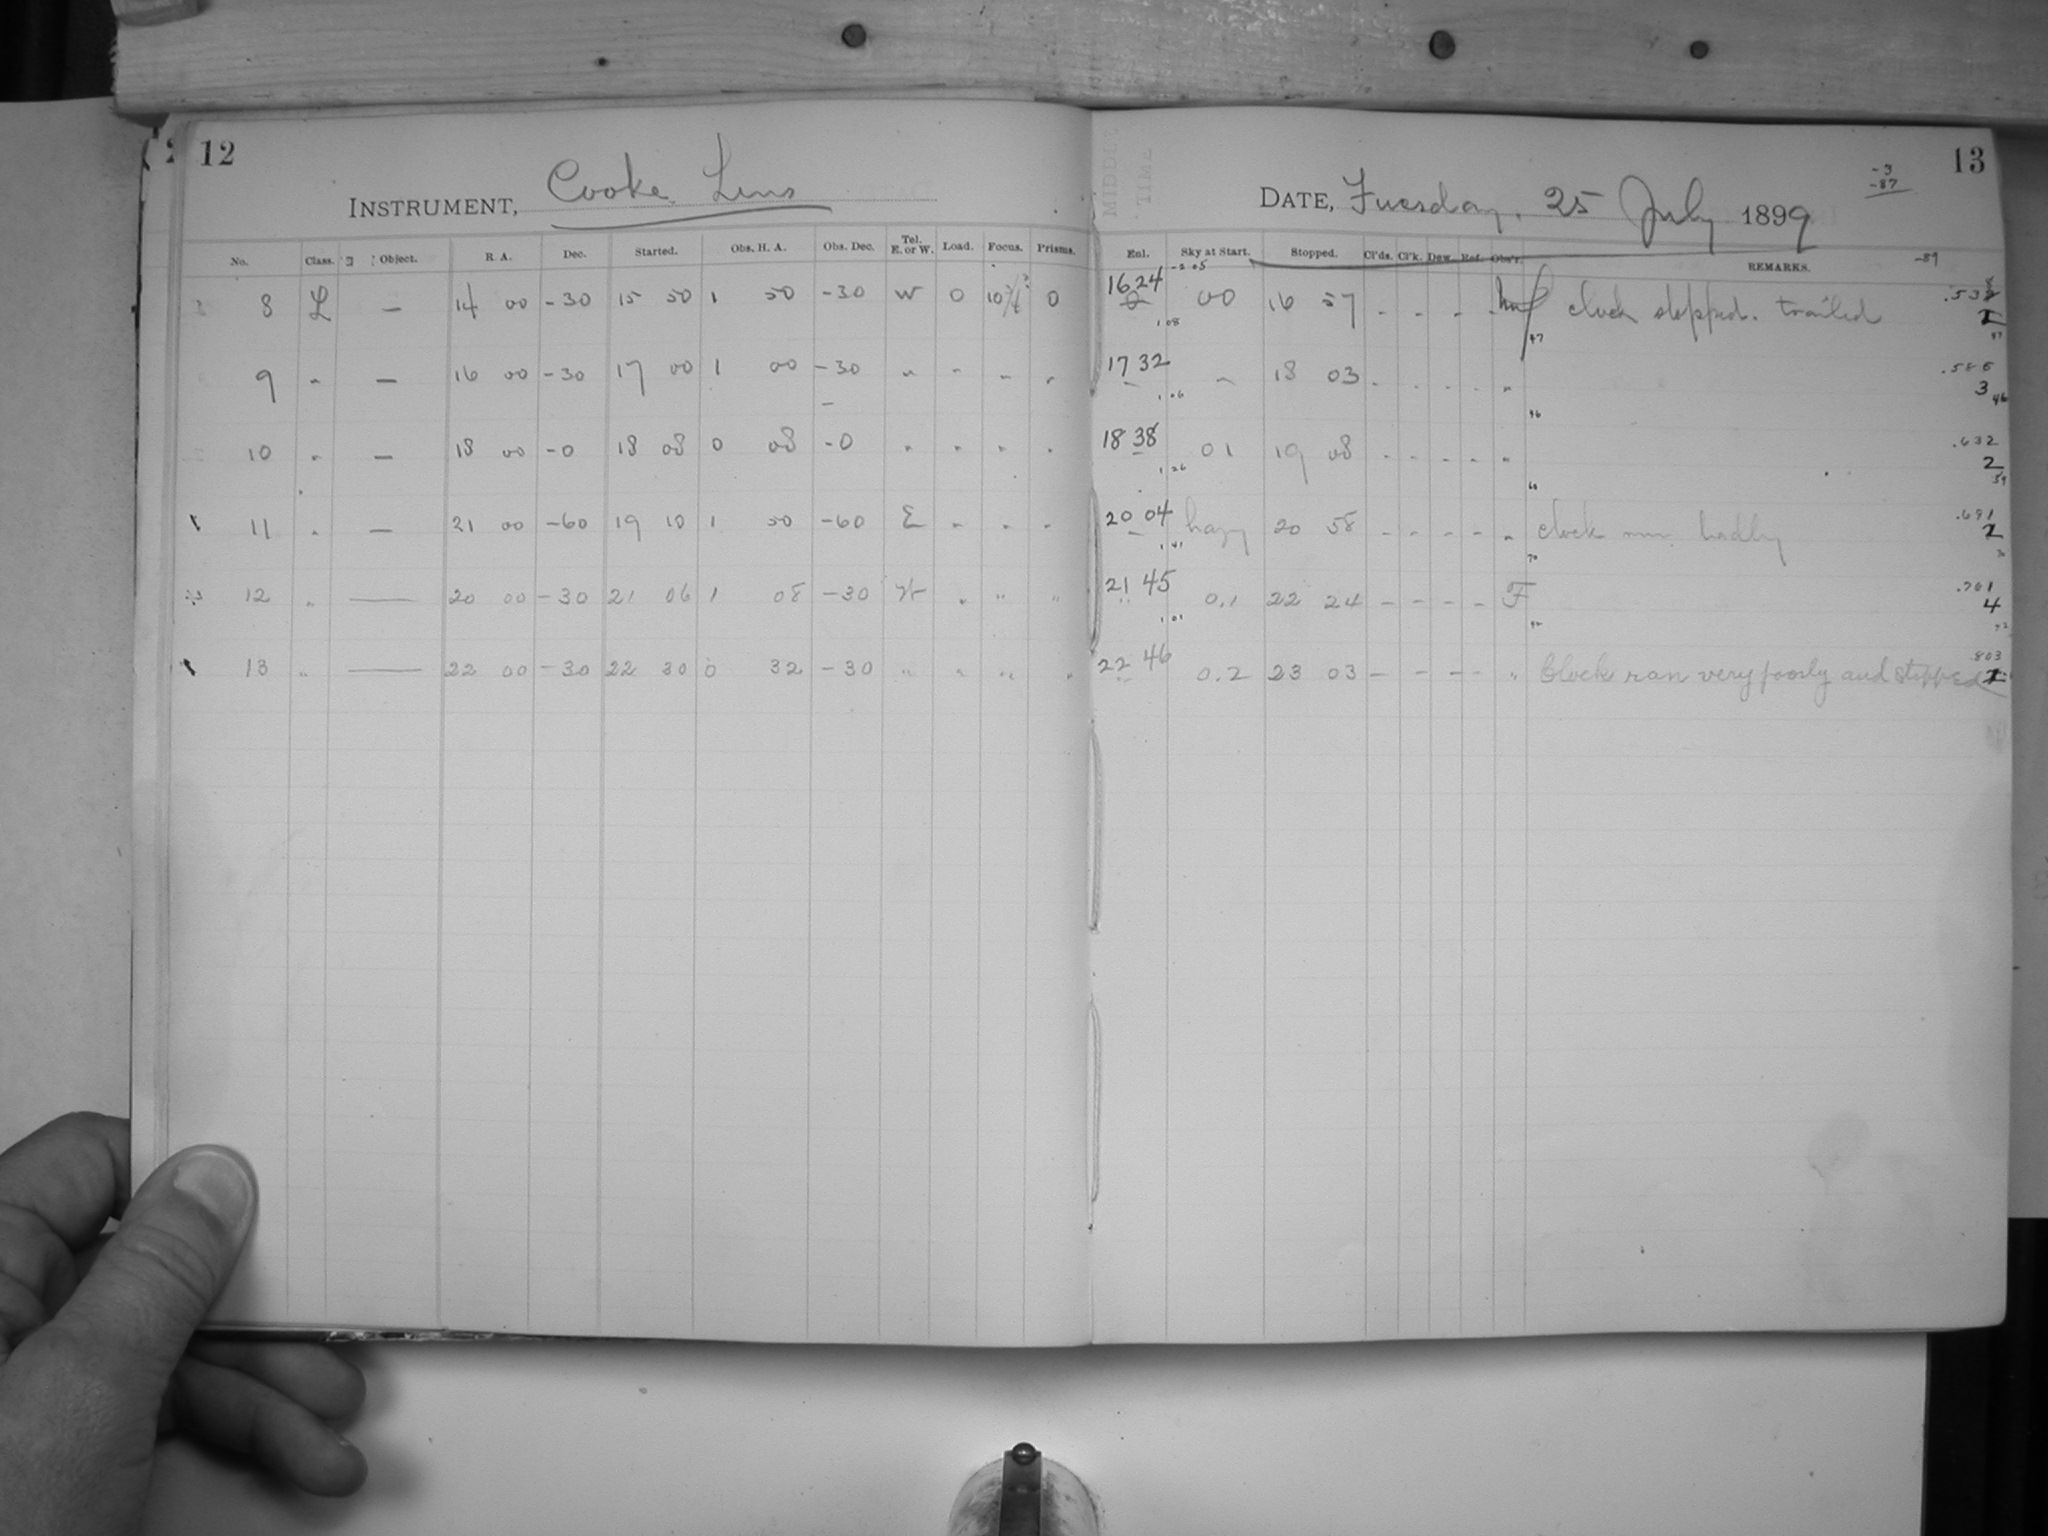 12
INSTRUMENT, Cooke Lens
No. Class. Object. R. A. Dec. Started. Obs. H. A. Obs. Dec. Tel. E. or W. Load. Focus. Prisms.
8 L — 14 00 -30 15 50 1 50 -30 W 0 10 0
9 " — 16 00 -30 17 00 1 00 -30 " " " "
10 " — 18 00 -0 18 08 0 08 -0 " " " "
11 " — 21 00 -60 19 10 1 50 -60 E " " "
12 " — 20 00 -30 21 06 1 08 -30 W " " "
13 " — 22 00 -30 22 30 0 32 -30 " " " "
13
-3
-87
DATE, Tuesday, 25 July 1899
Enl. Sky at Start. Stopped. Cl'ds. Cl'k. Dew. Ref. Obs'r. REMARKS. -89
-2 05
16 24 00 16 57 - - - - clock stopped. trailed .538
1 08 47
17 32 " 18 03 - - - - " .586
3 46
1 06 46
18 38 01 19 08 - - - - " .632
2 59
1 26
20 04 hazy 20 58 - - - - " clock run badly .691
2
1 41 70
21 45 0.1 22 24 - - - - F .761
4
1 01 42
22 46 0.2 23 03 - - - - " Clock ran very poorly and stopped .803